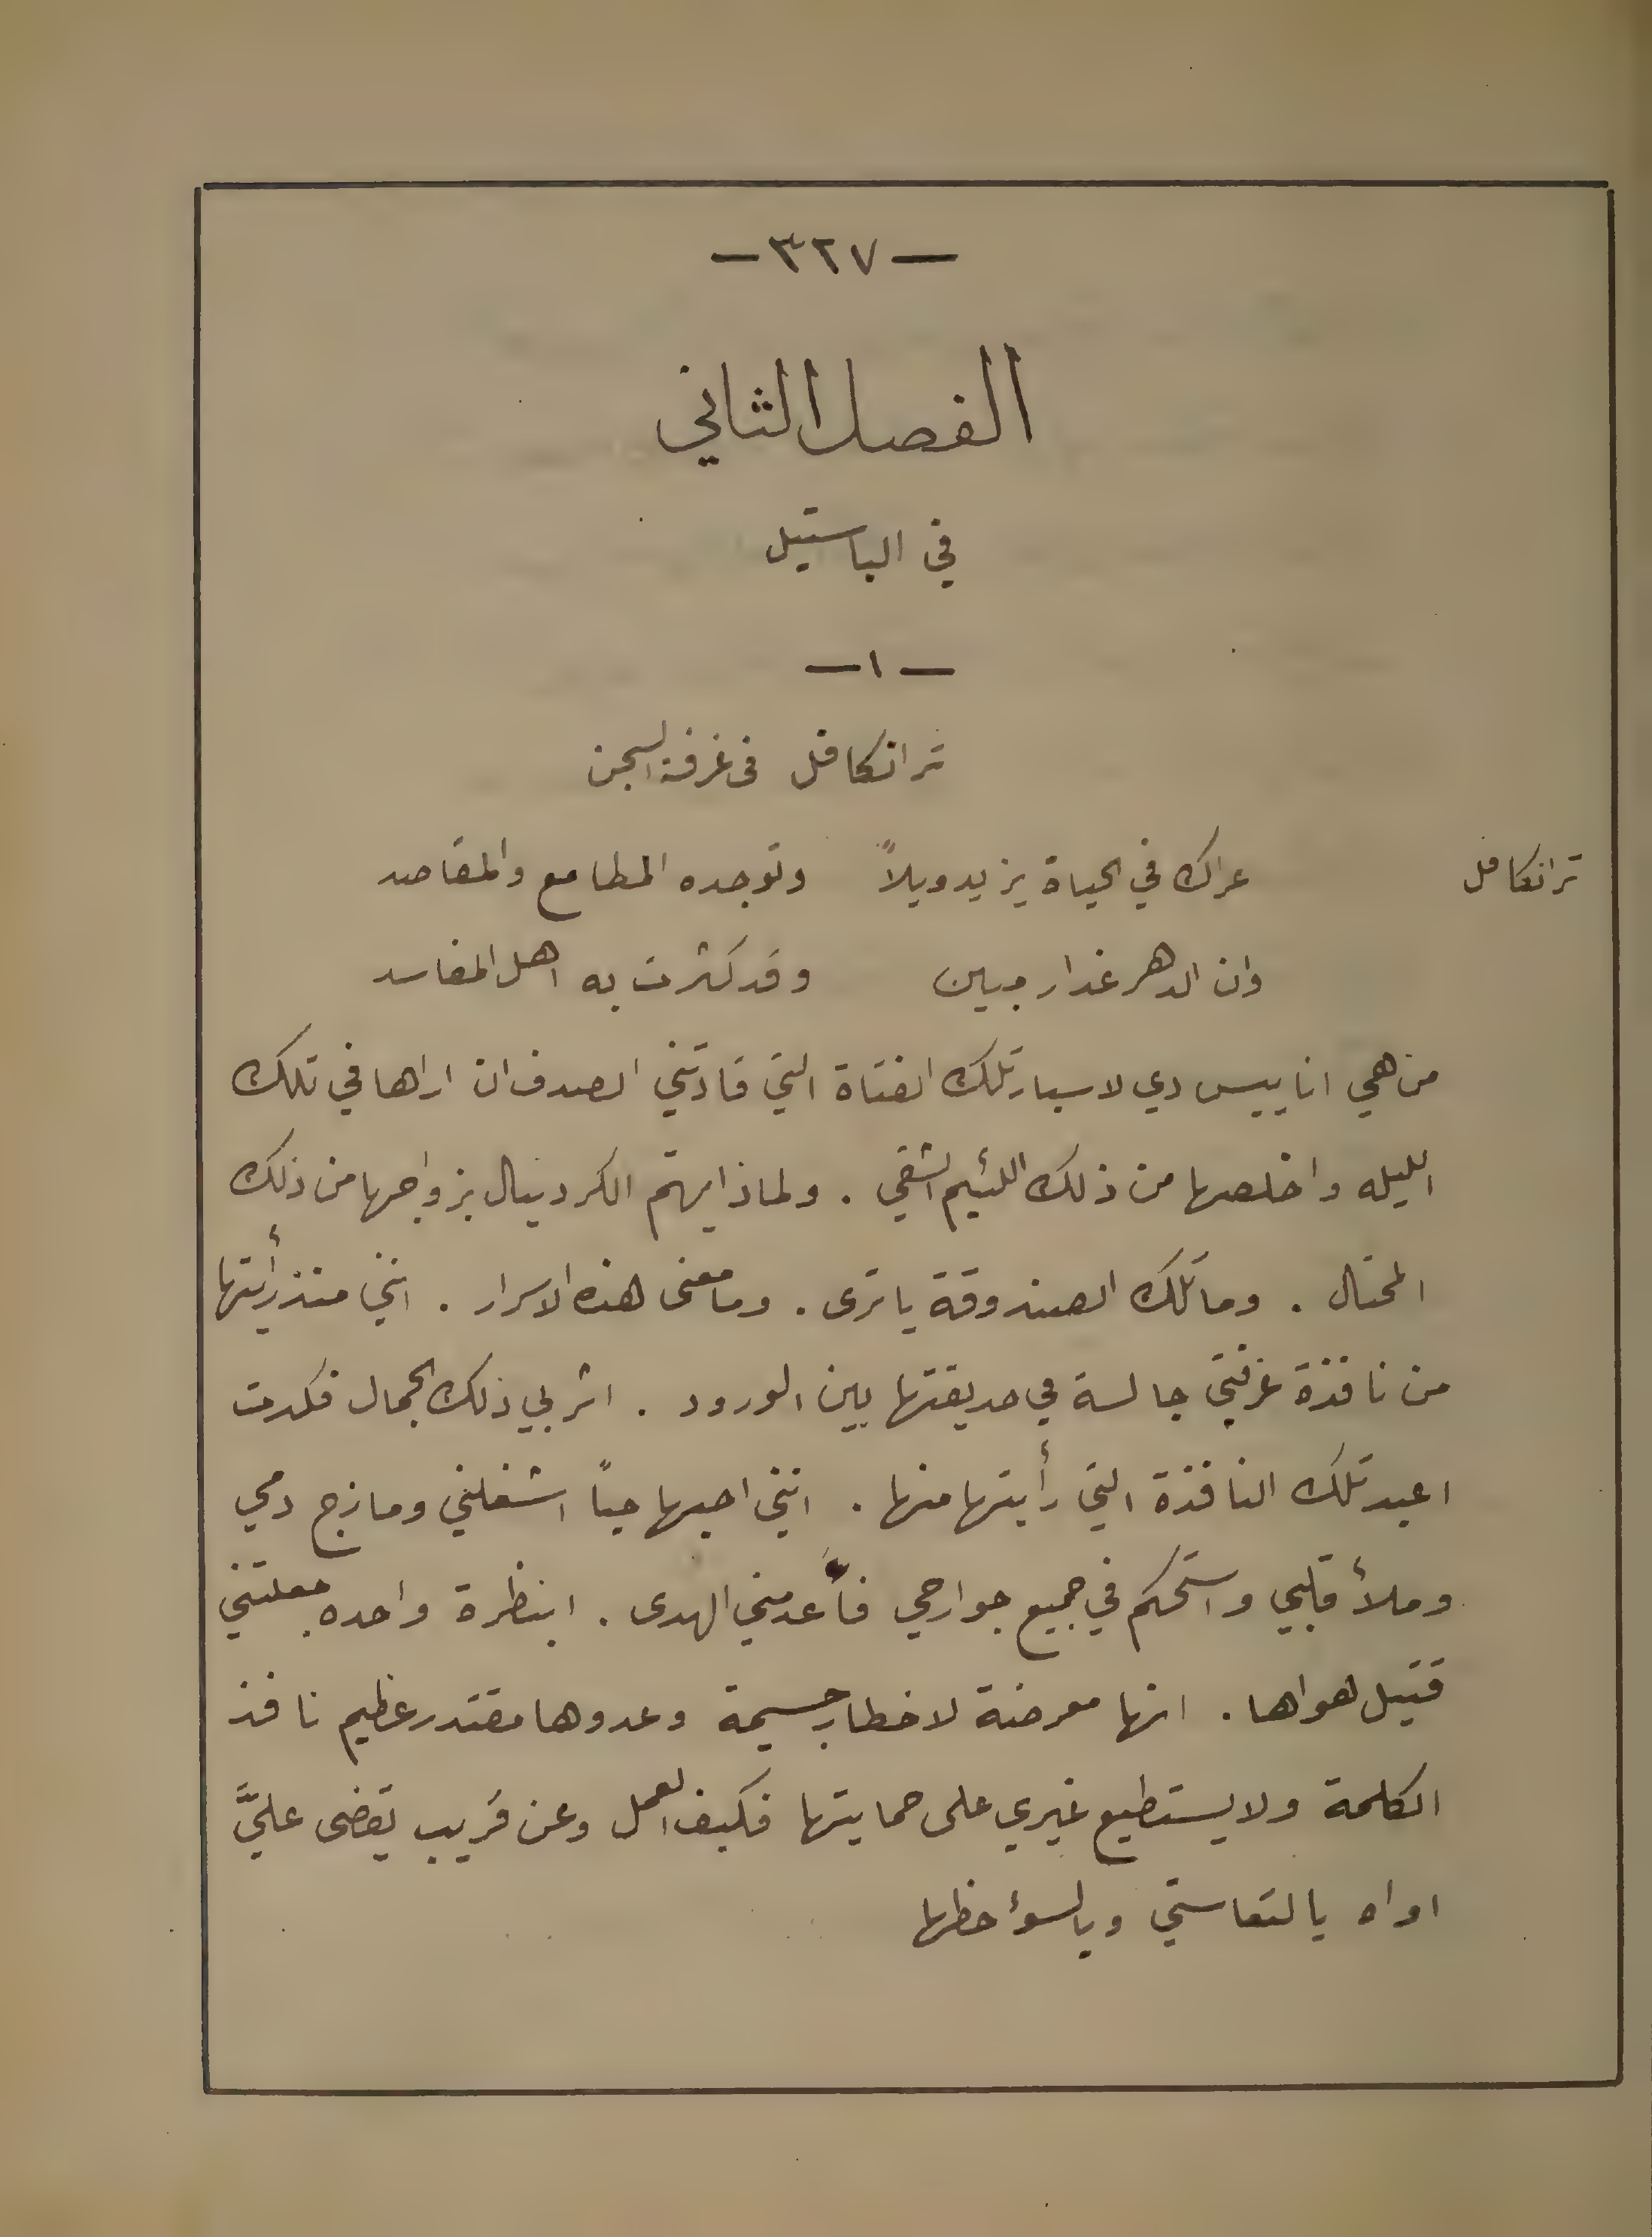 — ٣٢٧ —
الفصل الثاني
في الباستيل
— ١ —
ترانكافل فى غرفة السجن
ترانكافل عراك في الحياة يزيد ويلاً وتوجده المطامع والمقاصد
وان الدهر غدار مبين وقد كثرت به اهل المفاسد
من هي اناييس دي لاسبار تلك الفتاة التي قادتني الصدف ان اراها في تلك
الليله واخلصها من ذلك اللئيم الشقي . ولماذا يهتم الكردينال بزواجها من ذلك
المحتال . وما تلك الصندوقة يا ترى . وما معنى هذه الاسرار . انني منذ رأيتها
من نافذة غرفتي جالسة في حديقتها بين الورود . اثر بي ذلك الجمال فكدت
اعبد تلك النافذة التي رأيتها منها . انني احبها حباً اشغلني ومازج دمي
وملأ قلبي واستحكم في جميع جوارحي فأعدمني الهدى . ابنظرة واحده جعلتني
قتيل هواها . انها معرضة لاخطار جسيمة وعدوها مقتدر عظيم نافذ
الكلمة ولا يستطيع غيري على حمايتها فكيف العمل وعن قريب يقضى عليَّ
اواه يا لتعاستي ويا لسوء حظها